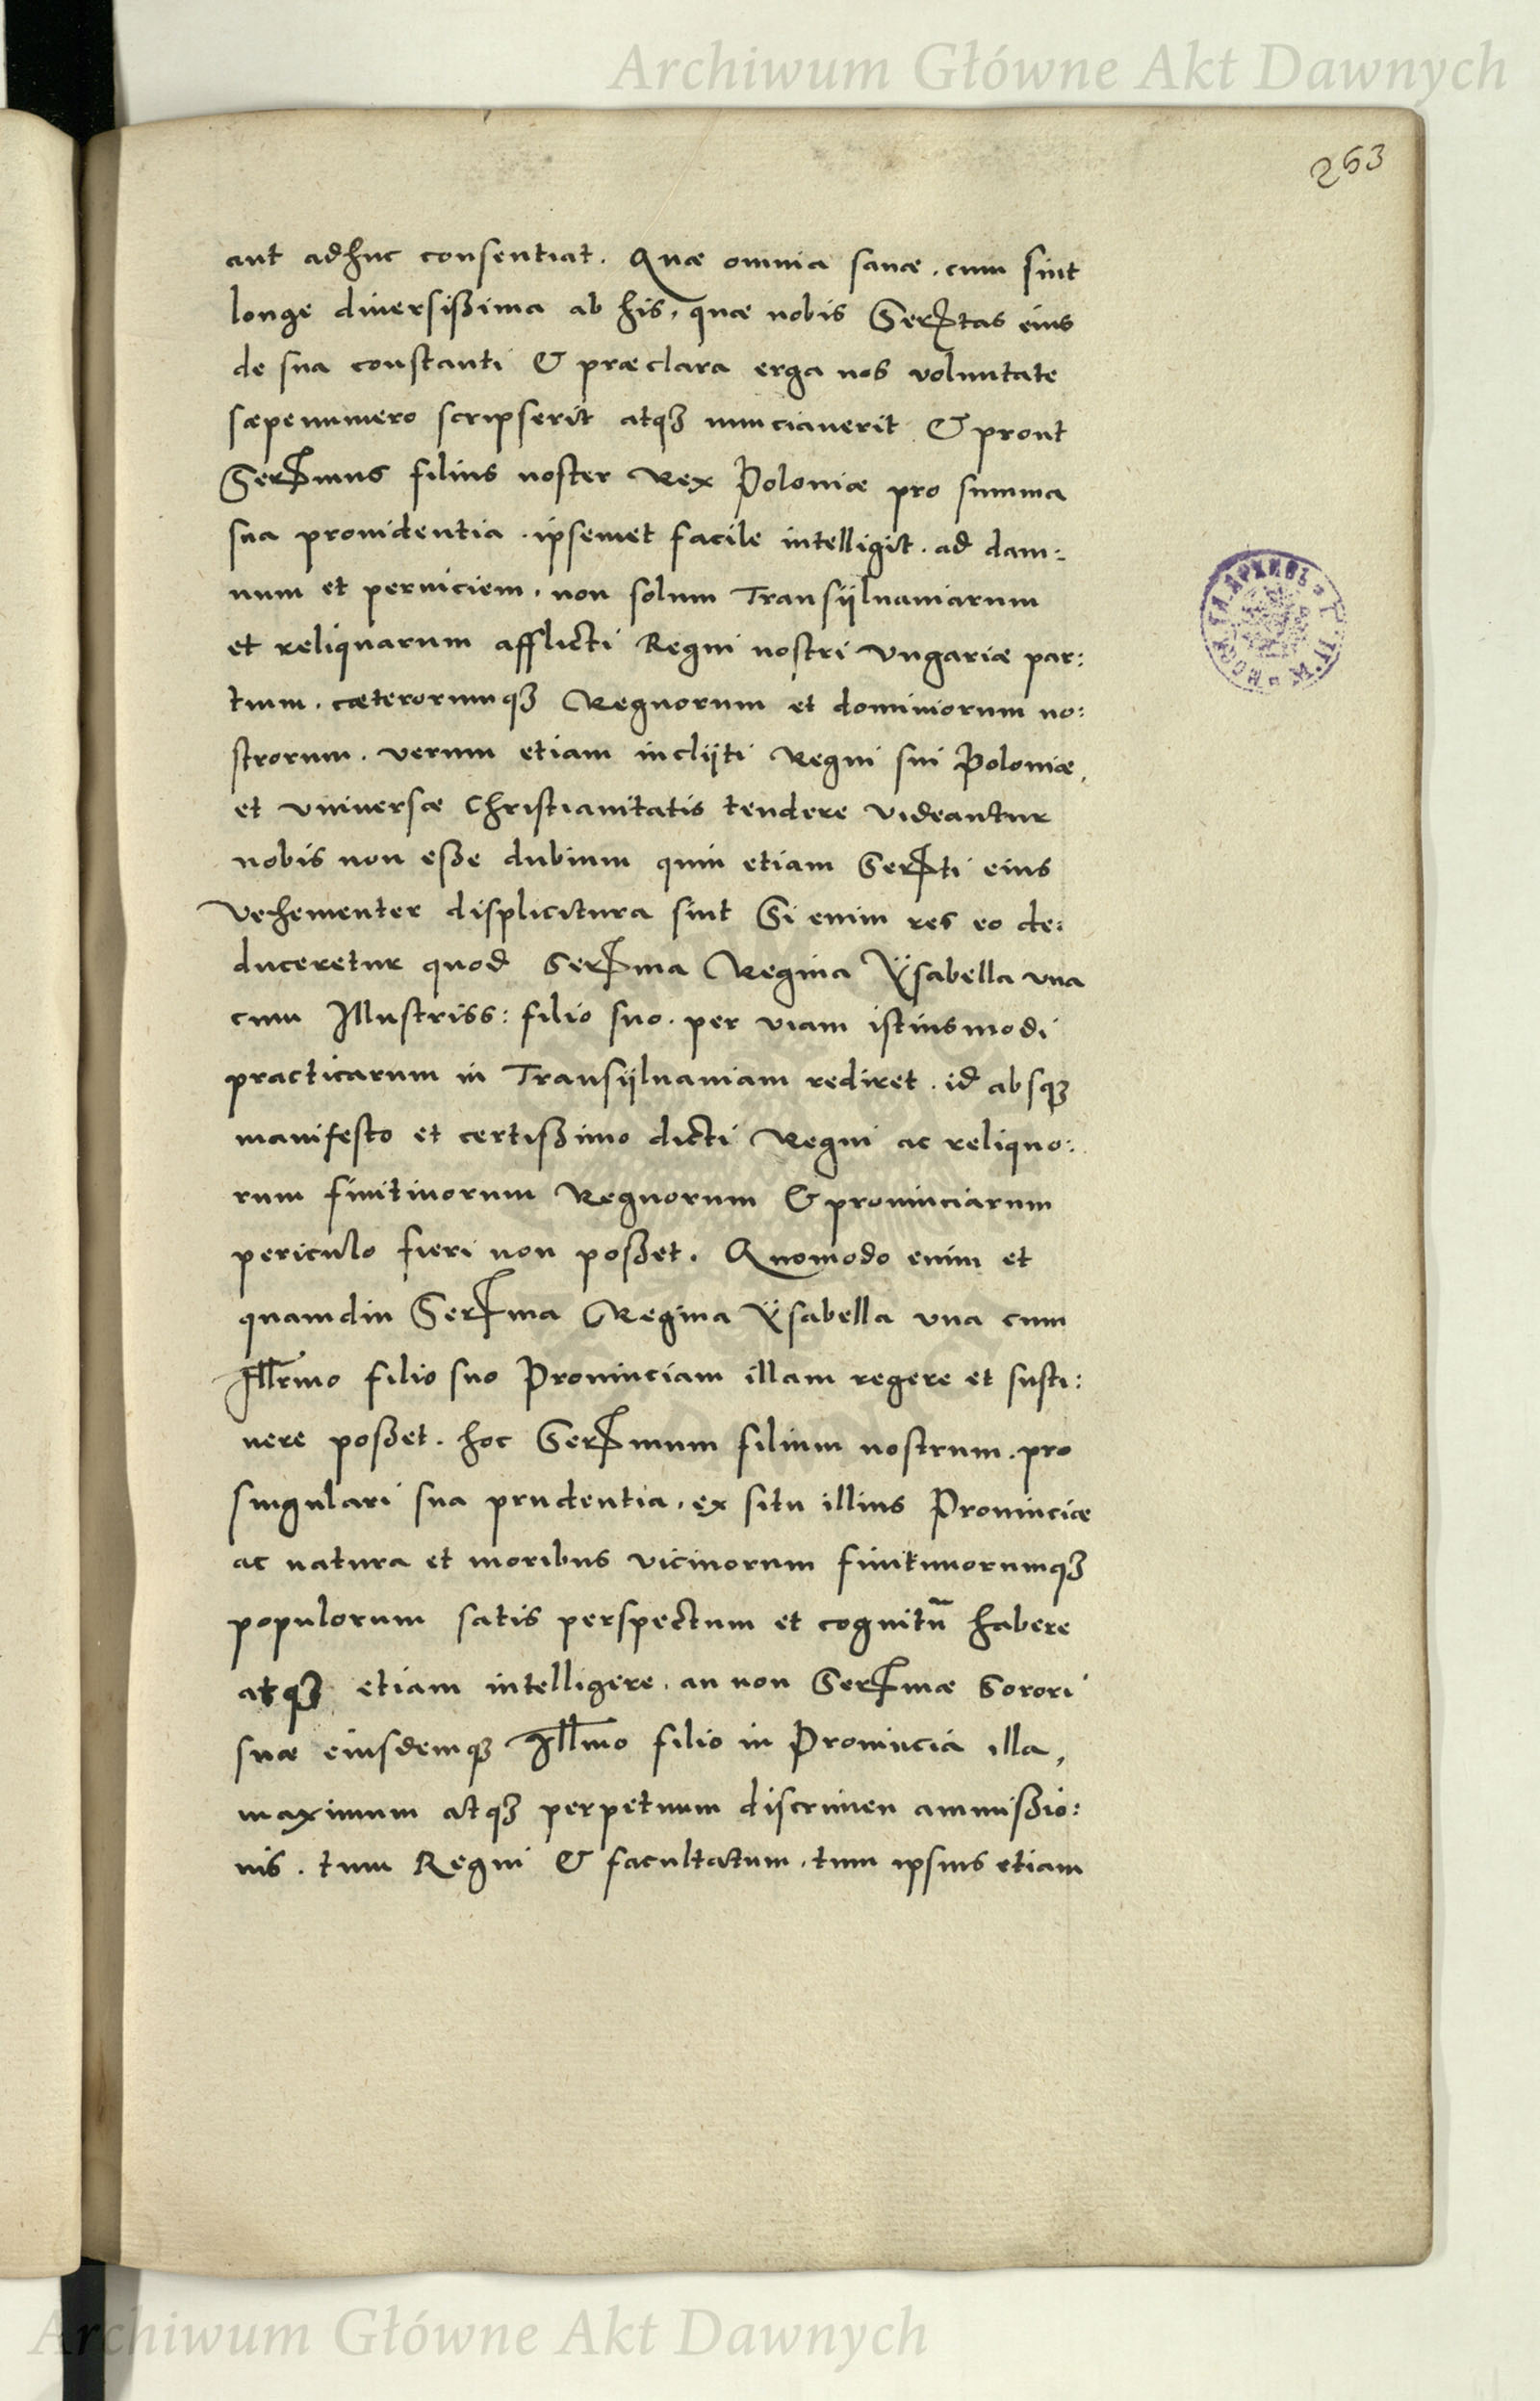 Archiwum Główne Akt Dawnych
263
aut adhuc consentiat. Quæ omnia sanæ. cum sint
longe diversißima ab his, quæ nobis Sertas eius
de sua constanti & præclara erga nos voluntate
sæpenumero scripserit atqꝫ nunciauerit & prout
Sermus filius noster Rex Poloniæ pro summa
sua prouidentia. ipsemet facile intelligit. ad dam:
num et perniciem. non solum Transÿluaniarum
et reliquarum afflicti Regni nostri Vngariæ par:
tium. cæterorumqꝫ Regnorum et dominiorum no:
strorum. verum etiam inclÿti Regni sui Poloniæ,
et vniversæ Christianitatis tendere videantur
nobis non eße dubium quin etiam Serti eius
vehementer displicitura sint Si enim res eo de:
duceretur quod Serma Regina Ÿsabella vna
cum Illustriss: filio suo. per viam istiusmodi
practicarum in Transÿluaniam rediret. id absqꝫ
manifesto et certißimo dicti Regni ac reliquo:
rum finitimorum Regnorum & prouinciarum
periculo fieri non poßet. Quomodo enim et
quamdiu Serma Regina Ÿsabella vna cum
Illrmo filio suo Prouinciam illam regere et susti:
nere poßet. hoc Sermum filium nostrum. pro
singulari sua prudentia, ex situ illius Prouinciæ
ac natura et moribus vicinorum finitimorumqꝫ
populorum satis perspectum et cognitu̅ habere
atqꝫ etiam intelligere. an non Sermæ Sorori
suæ eiusdemqꝫ Illmo filio in Prouincia illa,
maximum atqꝫ perpetuum discrimen ammißio:
nis. tum Regni & facultatum. tum ipsius etiam
Archiwum Główne Akt Dawnych